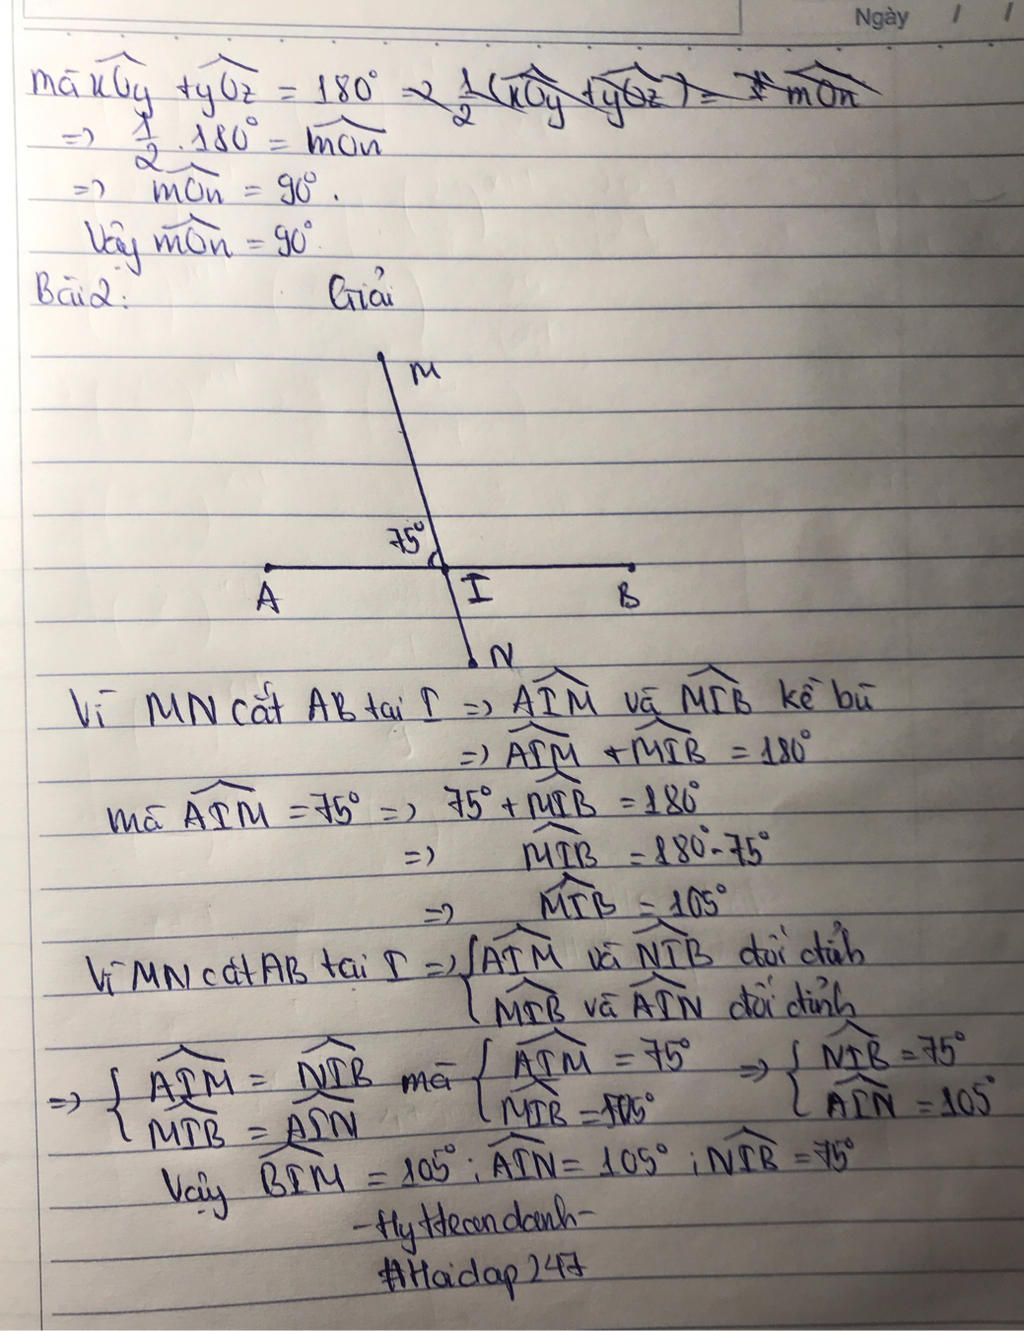 Ngày / /
mà xOy + yOz = 180° => 1/2 (xOy + yOz) = mOn
=> 1/2 . 180° = mOn
=> mOn = 90°.
Vậy mOn = 90°.
Bài 2: Giải
M
75°
A I B
N
Vì MN cắt AB tại I => AIM và MIB kề bù
=> AIM + MIB = 180°
mà AIM = 75° => 75° + MIB = 180°
=> MIB = 180° - 75°
=> MIB = 105°
Vì MN cắt AB tại I => { AIM và NIB đối đỉnh
MIB và AIN đối đỉnh
=> { AIM = NIB mà { AIM = 75° => { NIB = 75°
MIB = AIN MIB = 105° AIN = 105°
Vậy BIM = 105° ; AIN = 105° ; NIB = 75°
#Hoidap247